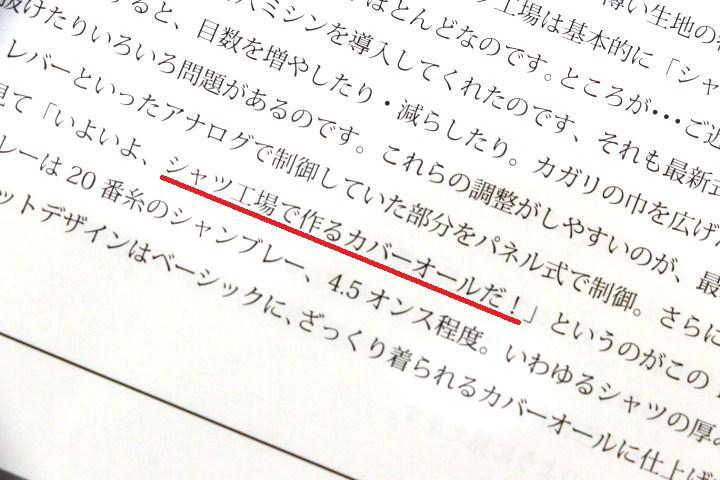 薄い生地の
工場は基本的に「シャ
ほとんどなのです。ところが•••ご近
ミシンを導入してくれたのです、それも最新
すると、目数を増やしたり・減らしたり。カガリの巾を広げた
抜けたりいろいろ問題があるのです。これらの調整がしやすいのが、最
レバーといったアナログで制御していた部分をパネル式で制御。さらに
見て「いよいよ、シャツ工場で作るカバーオールだ！」というのがこの
レーは20番糸のシャンブレー、4.5オンス程度。いわゆるシャツの厚み
ットデザインはベーシックに、ざっくり着られるカバーオールに仕上げ